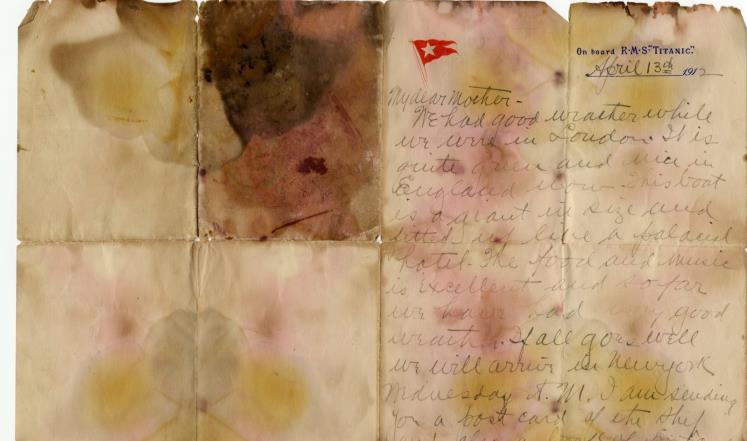 On board R·M·S "TITANIC".
April 13th 1912
My dear Mother -
We had good weather while
we were in London. It is
quite green and nice in
England now. This boat
is a giant in size and
fitted up like a palacial
hotel. The food and music
is excellent and so far
we have had very good
weather. If all goes well
we will arrive in New york
Wednesday A.M. I am sending
you a post card of the ship
and also a book